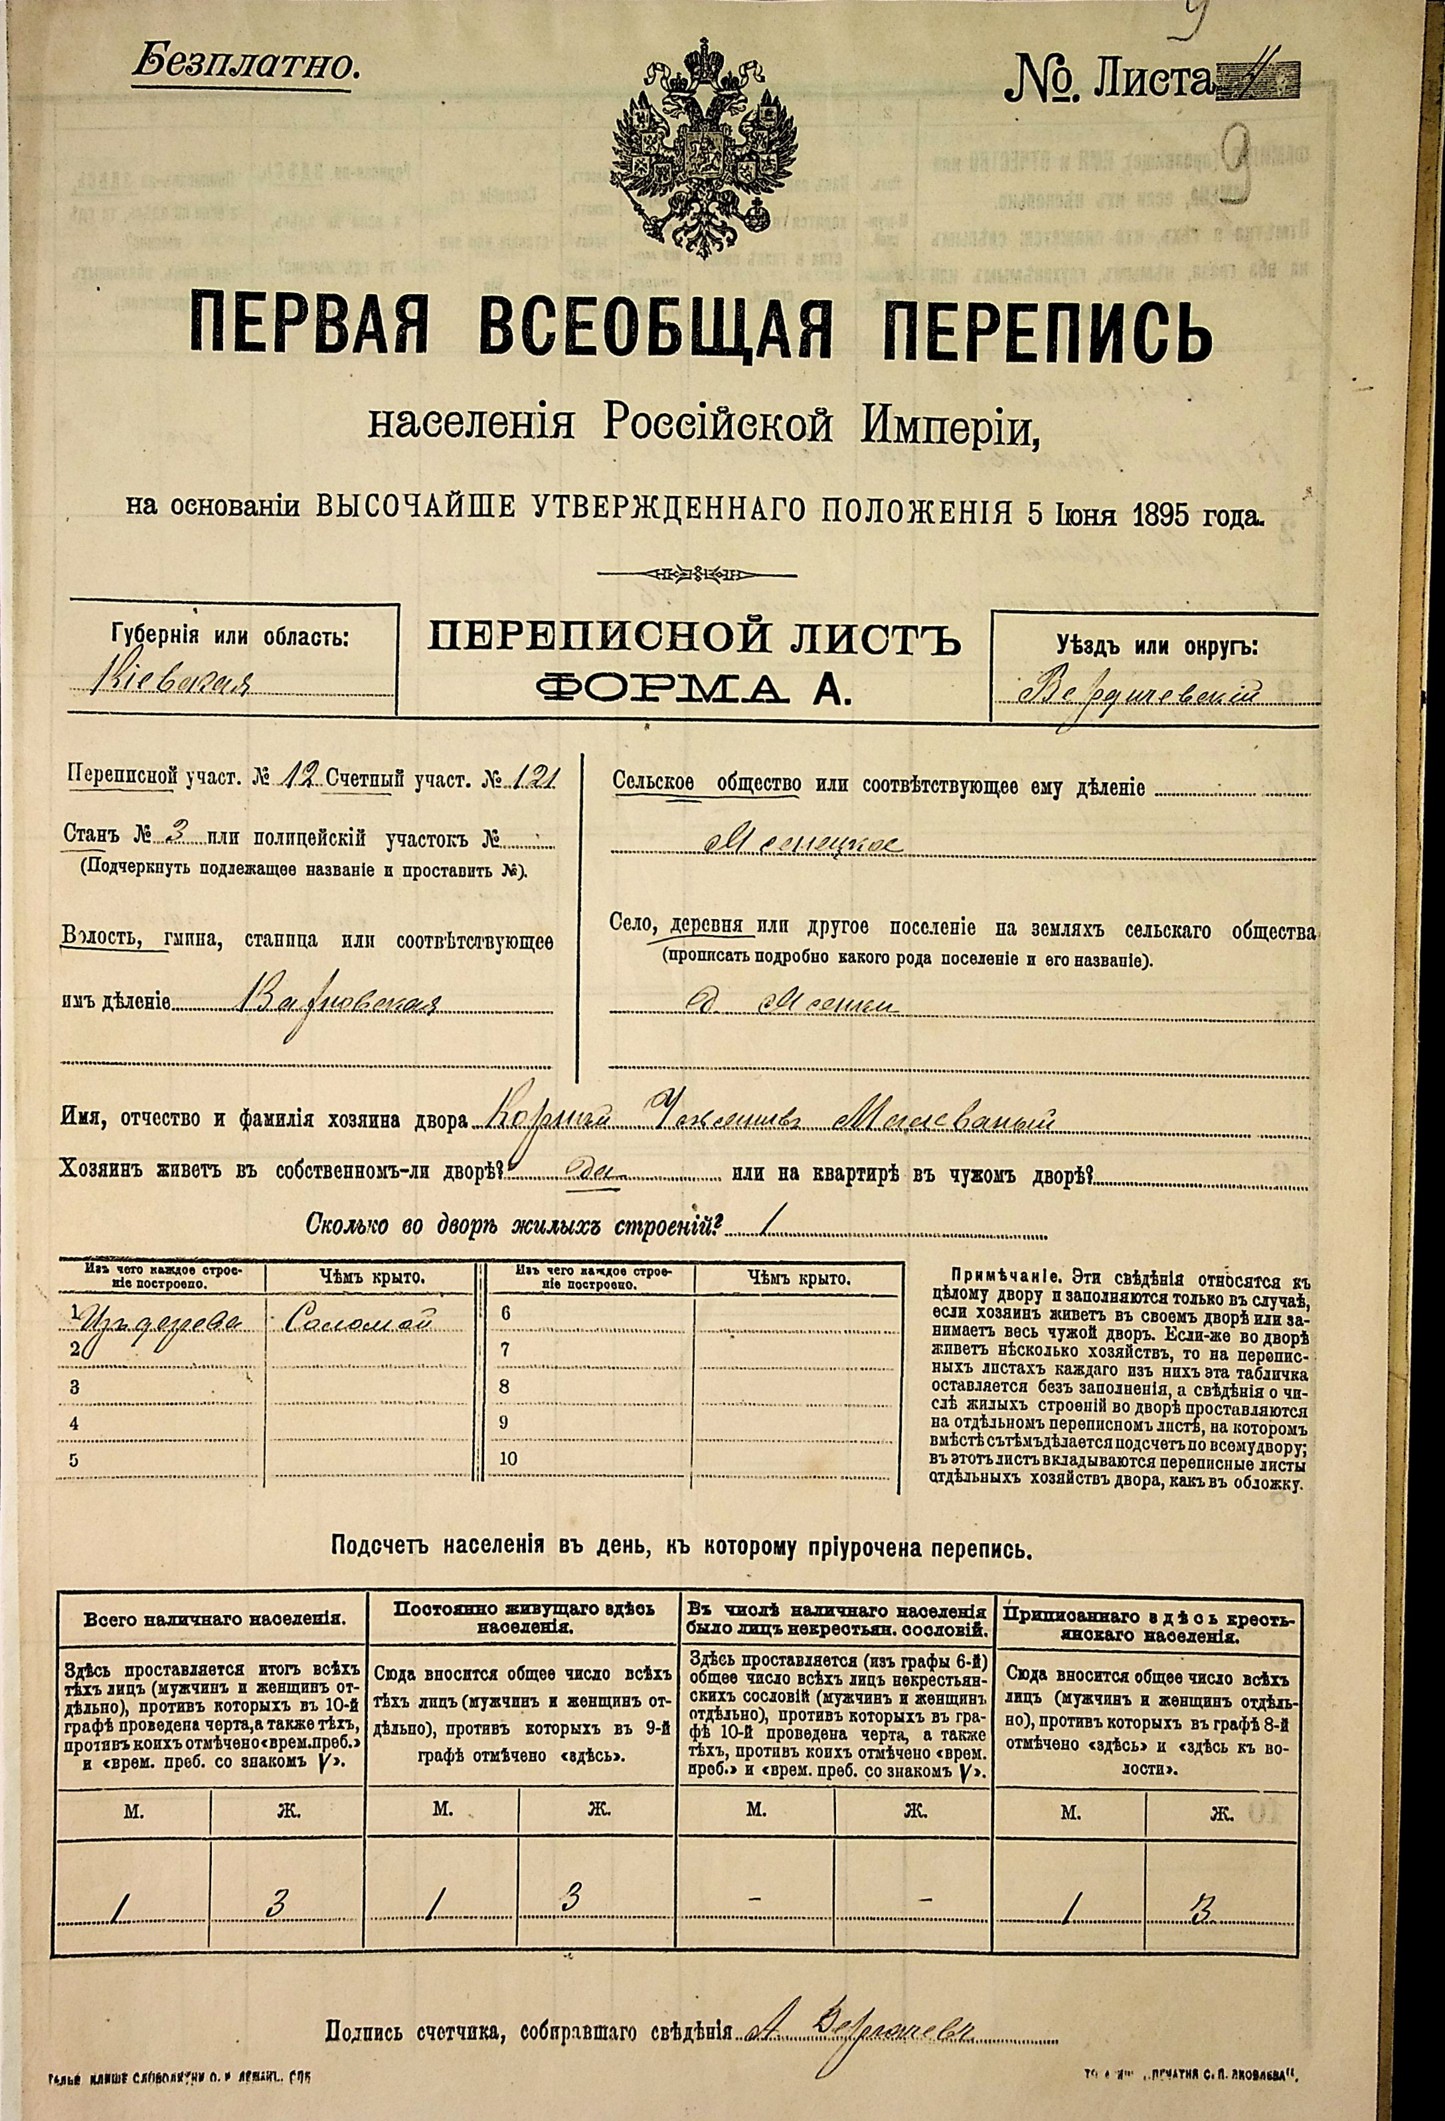 Безплатно.
№ Листа 4
9
9
ПЕРВАЯ ВСЕОБЩАЯ ПЕРЕПИСЬ
населенія Россійской Имперіи,
на основаніи ВЫСОЧАЙШЕ УТВЕРЖДЕННАГО ПОЛОЖЕНІЯ 5 Іюня 1895 года.
Губернія или область:
Кіевская
ПЕРЕПИСНОЙ ЛИСТЪ
ФОРМА А.
Уѣздъ или округъ:
Бердичевскій
Переписной участ. № 12 Счетный участ. № 121
Станъ № 3 или полицейскій участокъ №
(Подчеркнуть подлежащее названіе и проставить №).
Волость, гмина, станица или соотвѣтствующее
имъ дѣленіе
Сельское общество или соотвѣтствующее ему дѣленіе
Село, деревня или другое поселеніе на земляхъ сельскаго общества
(прописать подробно какого рода поселеніе и его названіе).
д.
Имя, отчество и фамилія хозяина двора Корній
Хозяинъ живетъ въ собственномъ-ли дворѣ? да или на квартирѣ въ чужомъ дворѣ?
Сколько во дворѣ жилыхъ строеній? 1
Изъ чего каждое строе-
ніе построено.
Чѣмъ крыто.
Изъ чего каждое строе-
ніе построено.
Чѣмъ крыто.
1 Изъ дерева Соломой
2
3
4
5
6
7
8
9
10
Примѣчаніе. Эти свѣдѣнія относятся къ
цѣлому двору и заполняются только въ случаѣ,
если хозяинъ живетъ въ своемъ дворѣ или за-
нимаетъ весь чужой дворъ. Если-же во дворѣ
живетъ нѣсколько хозяйствъ, то на перепис-
ныхъ листахъ каждаго изъ нихъ эта табличка
оставляется безъ заполненія, а свѣдѣнія о чи-
слѣ жилыхъ строеній во дворѣ проставляются
на отдѣльномъ переписномъ листѣ, на которомъ
вмѣстѣ съ тѣмъ дѣлается подсчетъ по всему двору;
въ этотъ листъ вкладываются переписные листы
отдѣльныхъ хозяйствъ двора, какъ въ обложку.
Подсчетъ населенія въ день, къ которому пріурочена перепись.
Всего наличнаго населенія.
Здѣсь проставляется итогъ всѣхъ
тѣхъ лицъ (мужчинъ и женщинъ от-
дѣльно), противъ которыхъ въ 10-й
графѣ проведена черта, а также тѣхъ,
противъ коихъ отмѣчено «врем. преб.»
и «врем. преб. со знакомъ V».
Постоянно живущаго здѣсь
населенія.
Сюда вносится общее число всѣхъ
тѣхъ лицъ (мужчинъ и женщинъ от-
дѣльно), противъ которыхъ въ 9-й
графѣ отмѣчено «здѣсь».
Въ числѣ наличнаго населенія
было лицъ некрестьян. сословій.
Здѣсь проставляется (изъ графы 6-й)
общее число всѣхъ лицъ некрестьян-
скихъ сословій (мужчинъ и женщинъ
отдѣльно), противъ которыхъ въ гра-
фѣ 10-й проведена черта, а также
тѣхъ, противъ коихъ отмѣчено «врем.
преб.» и «врем. преб. со знакомъ V».
Приписаннаго здѣсь кресть-
янскаго населенія.
Сюда вносится общее число всѣхъ
лицъ (мужчинъ и женщинъ отдѣль-
но), противъ которыхъ въ графѣ 8-й
отмѣчено «здѣсь» и «здѣсь къ во-
лости».
М. Ж. М. Ж. М. Ж. М. Ж.
1 3 1 3 - - 1 3
Подпись счетчика, собиравшаго свѣдѣнія А.